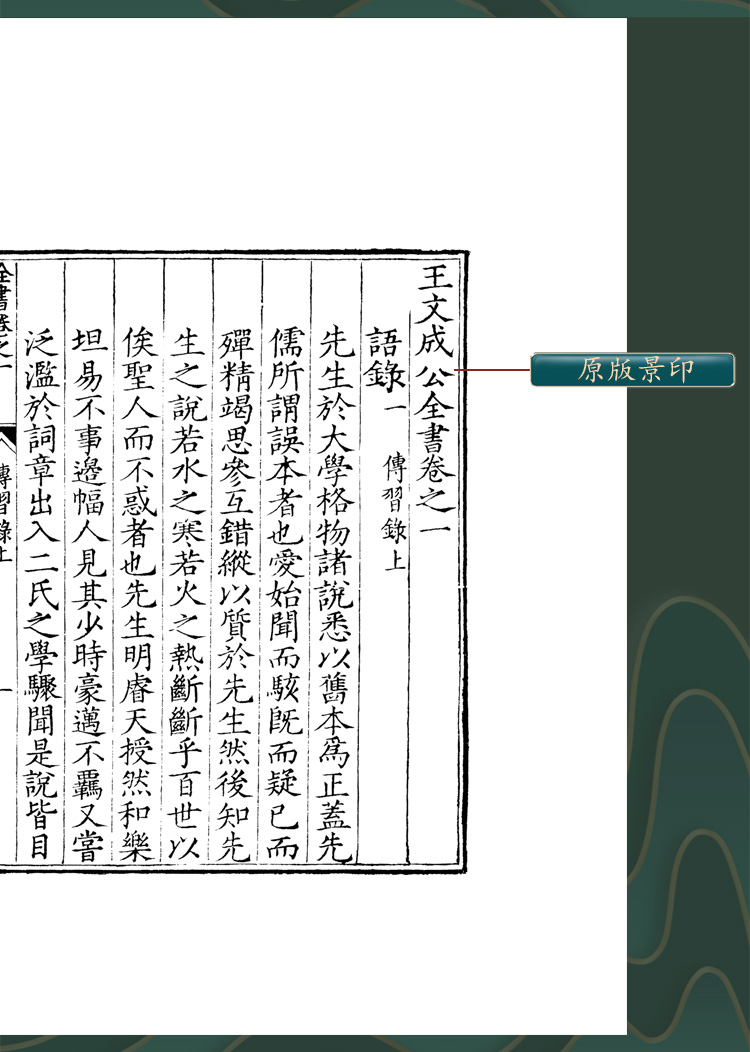 王文成公全書卷之一
語錄一 傳習錄上
先生於大學格物諸說悉以舊本爲正蓋先
儒所謂誤本者也愛始聞而駭旣而疑已而
殫精竭思參互錯縱以質於先生然後知先
生之說若水之寒若火之熱斷斷乎百世以
俟聖人而不惑者也先生明睿天授然和樂
坦易不事邊幅人見其少時豪邁不羈又嘗
泛濫於詞章出入二氏之學驟聞是說皆目
全書卷之一
傳習錄上
一
原版景印